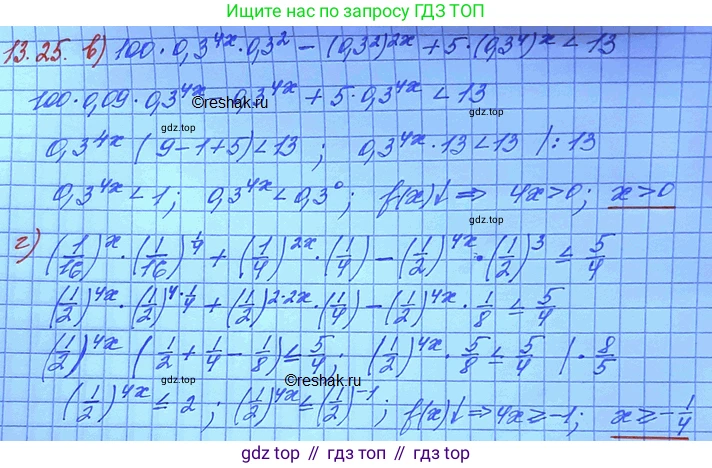 Ищите нас по запросу
ГДЗ ТОП
13.25. в) 100 · 0,3^{4x} · 0,3^2 − (0,3^2)^{2x} + 5 · (0,3^4)^x < 13
100 · 0,09 · 0,3^{4x} − 0,3^{4x} + 5 · 0,3^{4x} < 13
©reshak.ru
gdz.top
0,3^{4x} (9 − 1 + 5) < 13 ; 0,3^{4x} · 13 < 13 | : 13
gdz.top
gdz.top
0,3^{4x} < 1 ; 0,3^{4x} < 0,3^0 ; f(x)↓ ⇒ 4x > 0 ; x > 0
gdz.top
г) (1/16)^x · (1/16)^{1/4} + (1/4)^{2x} · (1/4) − (1/2)^{4x} · (1/2)^3 ≤ 5/4
gdz.top
(1/2)^{4x} · (1/2)^{4 · 1/4} + (1/2)^{2 · 2x} · (1/4) − (1/2)^{4x} · 1/8 ≤ 5/4
gdz.top
(1/2)^{4x} (1/2 + 1/4 − 1/8) ≤ 5/4 ; (1/2)^{4x} · 5/8 ≤ 5/4 | · 8/5
gdz.top
©reshak.ru
(1/2)^{4x} ≤ 2 ; (1/2)^{4x} ≤ (1/2)^{-1} ; f(x)↓ ⇒ 4x ≥ −1 ; x ≥ −1/4
gdz.top
gdz.top // гдз топ // гдз.топ